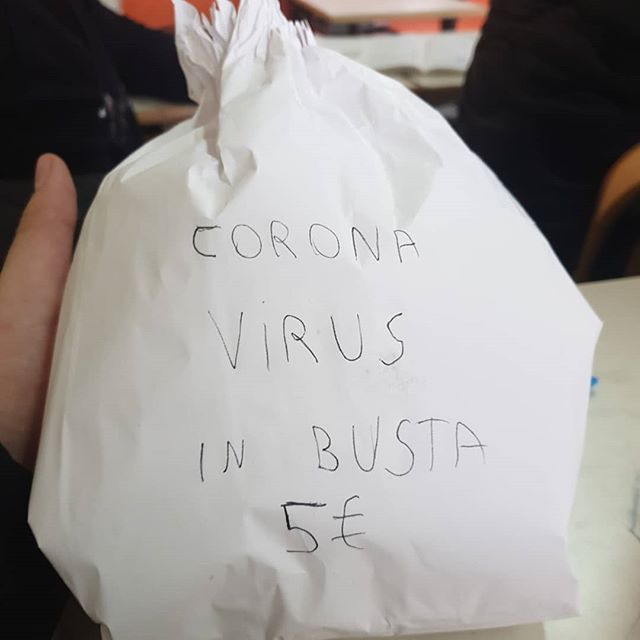 CORONA
ViRUS
IN BUSTA
5€